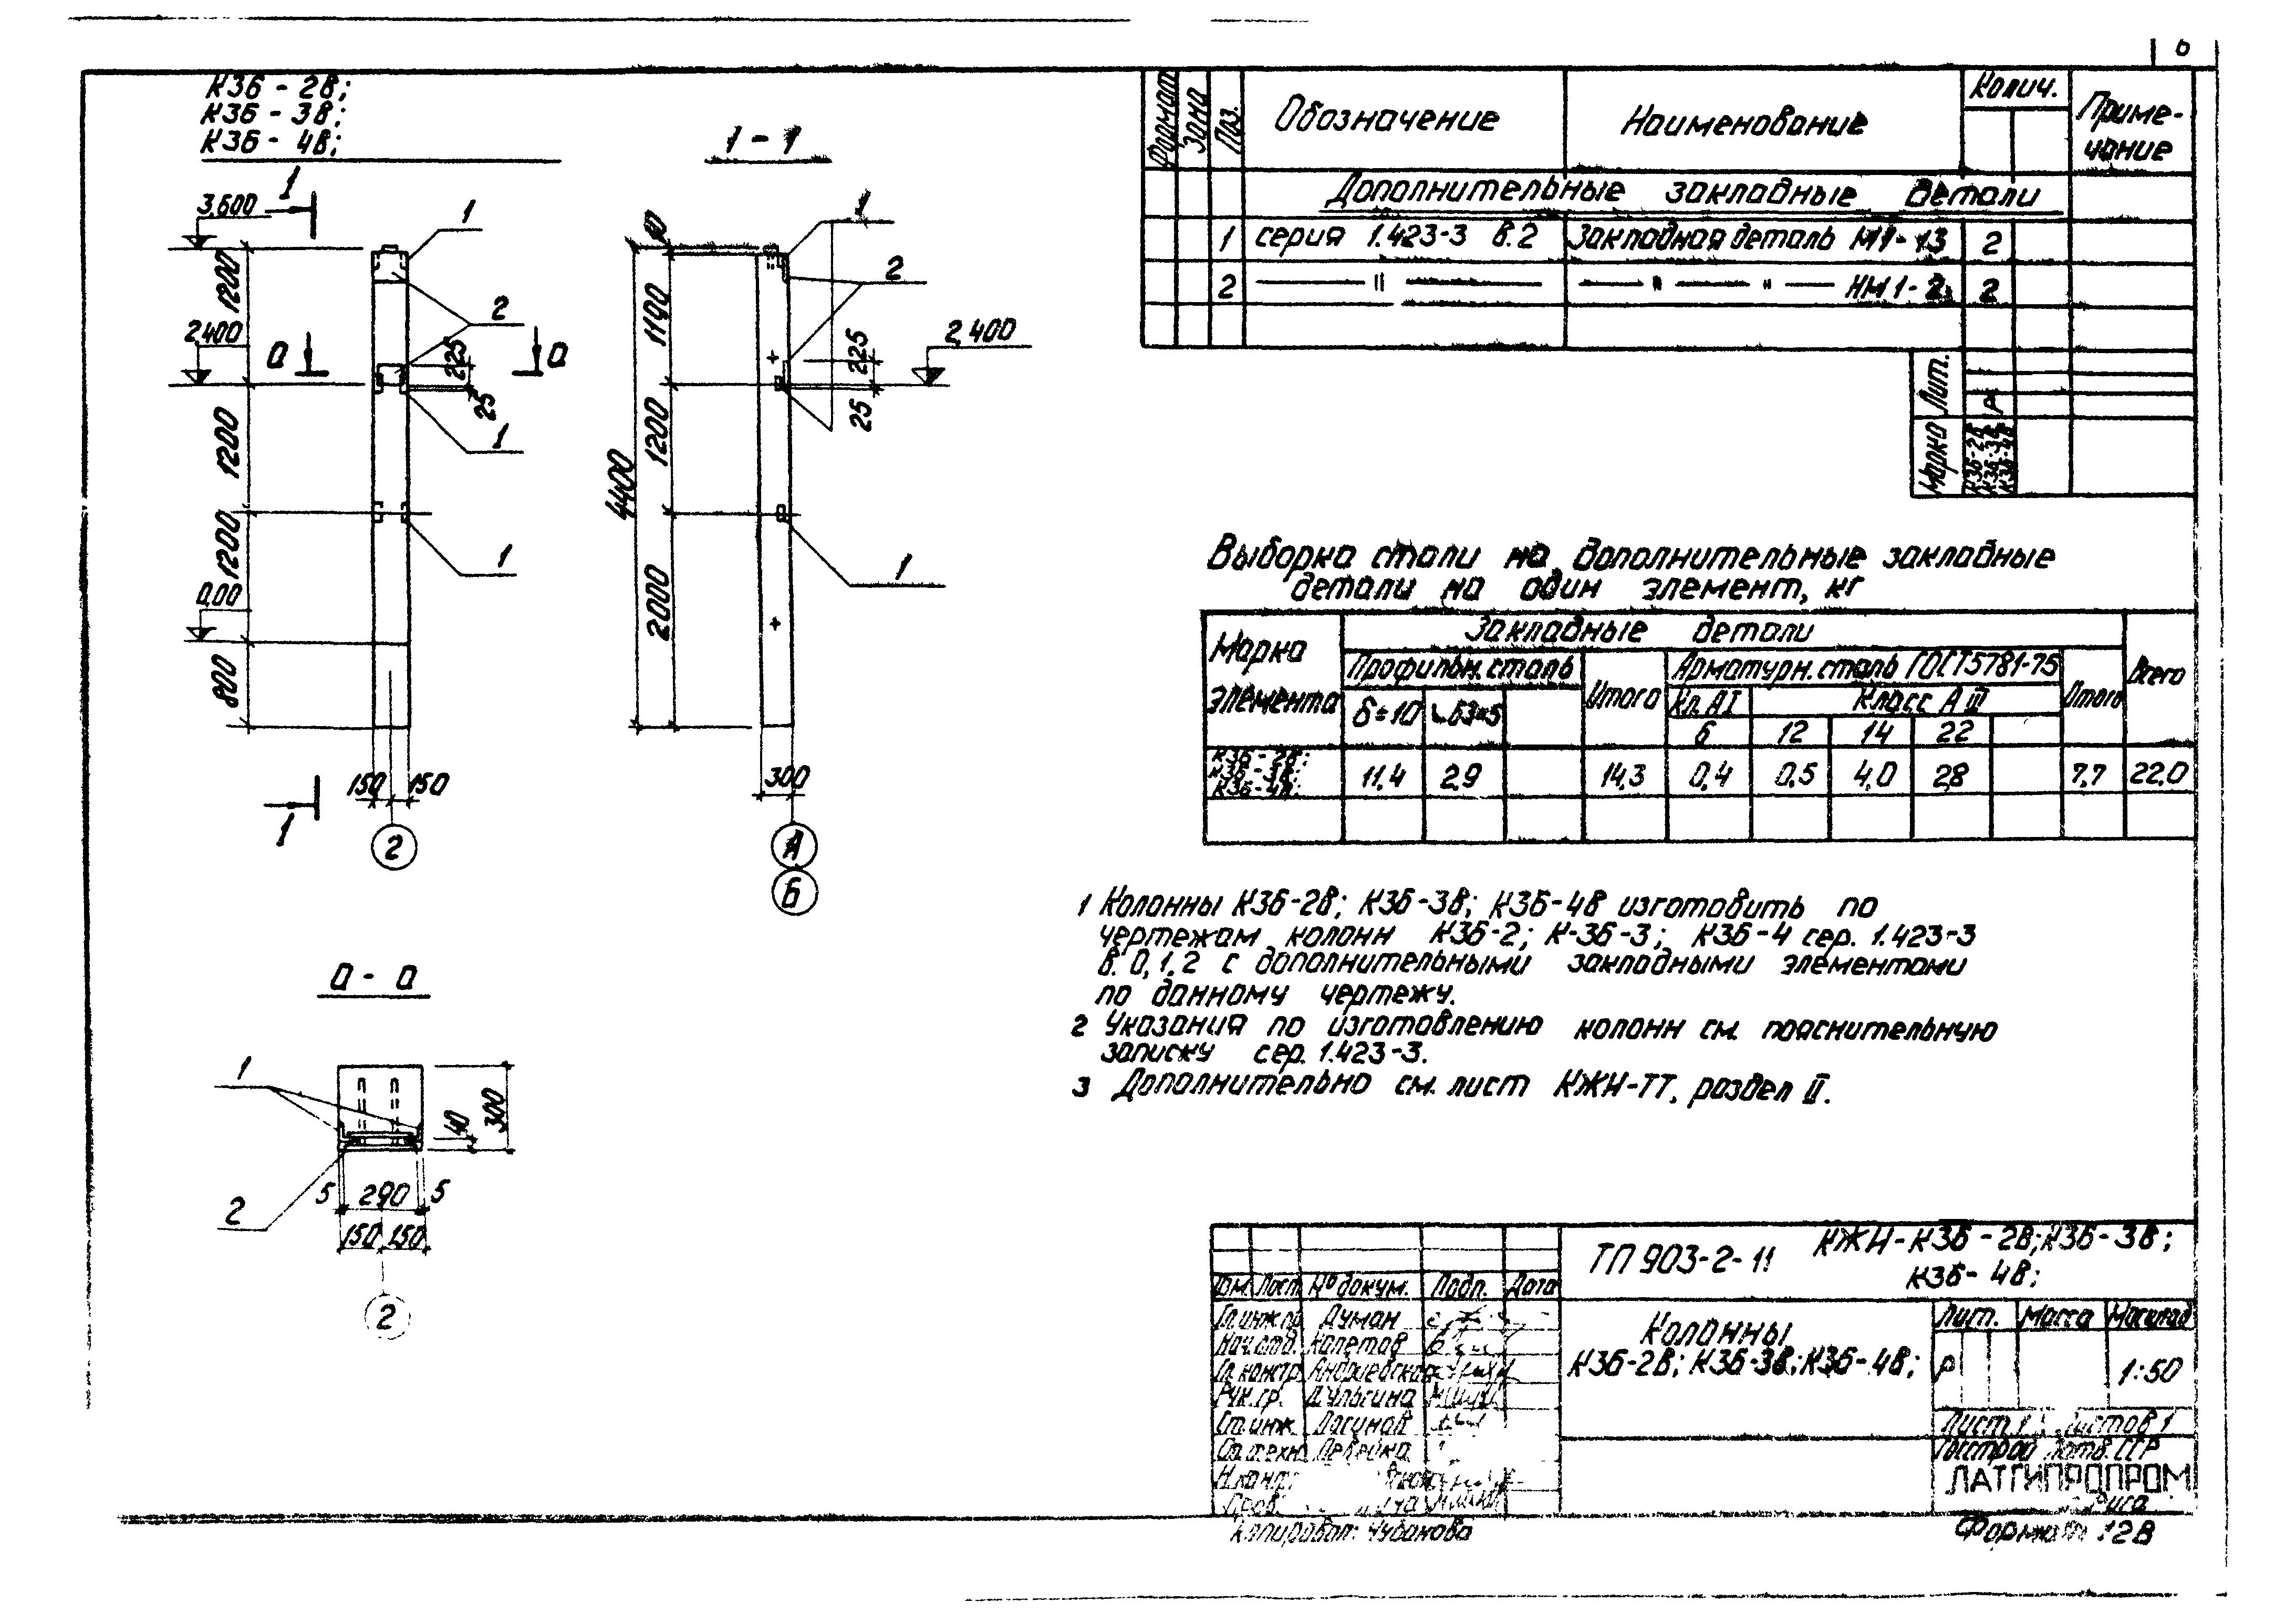 6
К3Б - 2В;
К3Б - 3В;
К3Б - 4В;
1 - 1
1
3.600
1
1200
2
2.400
а
а
225
25
1
1200
1
1200
0.00
800
150
150
1
2
10
1
2
1190
225
2.400
25
1200
4400
1
2000
300
А
Б
а - а
1
40
300
2
5
290
5
150
150
2
Формат
Зона
Поз.
Обозначение
Наименование
Колич.
Приме-
чание
Дополнительные закладные детали
1 серия 1.423-3 в.2 Закладная деталь М1-13 2
2 — " — — " — " — НМ1-2 2
Лит.
Р
Марка
К3Б-2В
К3Б-3В
К3Б-4В
Выборка стали на дополнительные закладные
детали на один элемент, кг
Марка
элемента
Закладные детали
Всего
Профильн. сталь
Итого
Арматурн. сталь ГОСТ5781-75
Итого
δ=10
∟63×5
Кл. АI
Класс А III
6 12 14 22
К3Б-2В;
К3Б-3В;
К3Б-4В;
11,4 2,9 14,3 0,4 0,5 4,0 2,8 7,7 22,0
1 Колонны К3Б-2В; К3Б-3В; К3Б-4В изготовить по
чертежам колонн К3Б-2; К-3Б-3; К3Б-4 сер. 1.423-3
в. 0,1,2 с дополнительными закладными элементами
по данному чертежу.
2 Указания по изготовлению колонн см. пояснительную
записку сер. 1.423-3.
3 Дополнительно см. лист КЖИ-ТТ, раздел II.
ТП 903-2-11
КЖИ-К3Б-2В; К3Б-3В;
К3Б-4В;
Изм. Лист № докум. Подп. Дата
Гл.инж.пр. Думан
Нач.отд. Капетов
Гл.констр. Андриевская
Рук.гр. Дульгина
Ст.инж. Логинов
Ст.техн.
Н.контр.
Пров.
Колонны
К3Б-2В; К3Б-3В; К3Б-4В;
Лит. Масса Масштаб
Р 1:50
Лист 1 Листов 1
Госстрой Латв. ССР
ЛАТГИПРОПРОМ
Рига
Копировал: Чубанова
Формат 12В